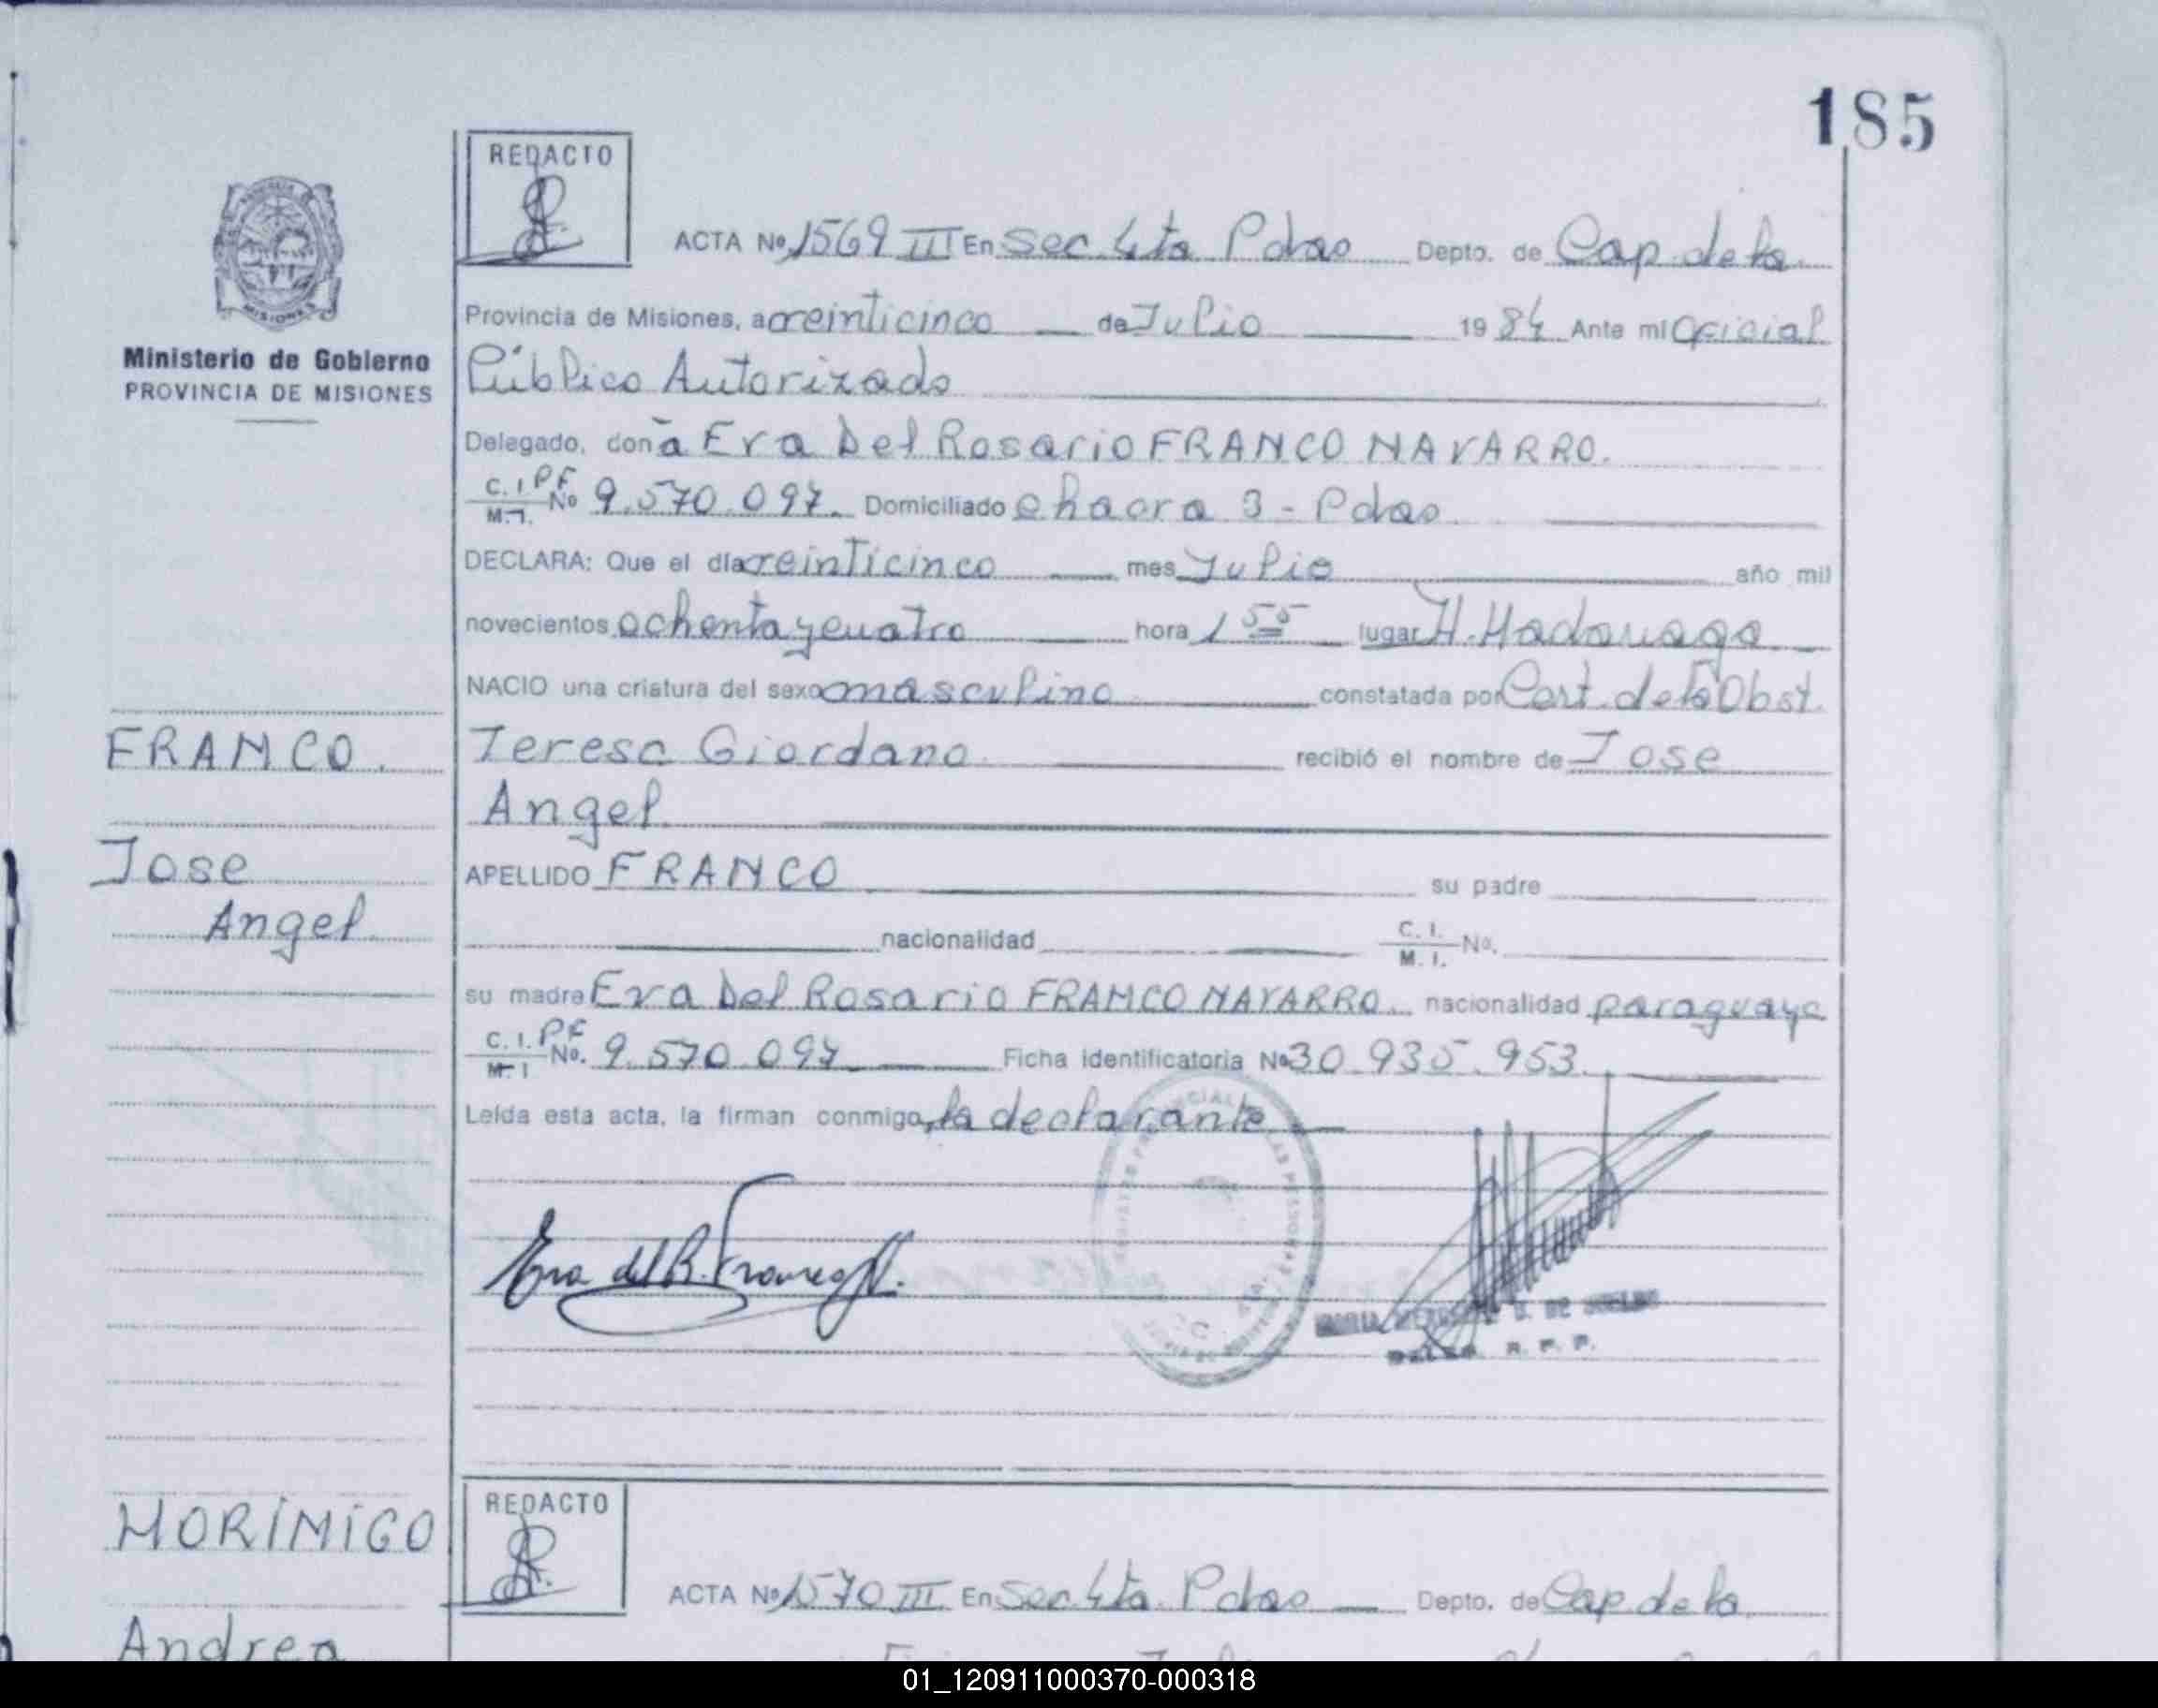 185
REDACTO
ACTA Nº 1569 III En Sec. 4ta Pdas Depto. de Cap. de la
Provincia de Misiones, a veinticinco de Julio 1984 Ante mi Oficial
Ministerio de Gobierno
PROVINCIA DE MISIONES
Público Autorizado
Delegado, doña Eva Del Rosario FRANCO NAVARRO.
C.I. P.F. M.I. Nº 9.570.097. Domiciliado Chacra 3 - Pdas
DECLARA: Que el día veinticinco mes Julio año mil
novecientos ochenta y cuatro hora 1 55 lugar H. Madariaga
NACIO una criatura del sexo masculino constatada por Cert. de la Obst.
FRANCO.
Teresa Giordano recibió el nombre de Jose
Angel
Jose
APELLIDO FRANCO su padre
Angel
nacionalidad C.I. M.I. Nº.
su madre Eva Del Rosario FRANCO NAVARRO. nacionalidad paraguaya
C.I. P.F. M.I Nº. 9.570.097 Ficha identificatoria Nº 30.935.953.
Leída esta acta, la firman conmigo, la declarante
Eva del R. Franco N.
MORÍNIGO
REDACTO
ACTA Nº 1570 III En Sec. 4ta. Pdas Depto. de Cap. de la
Andrea
01_120911000370-000318